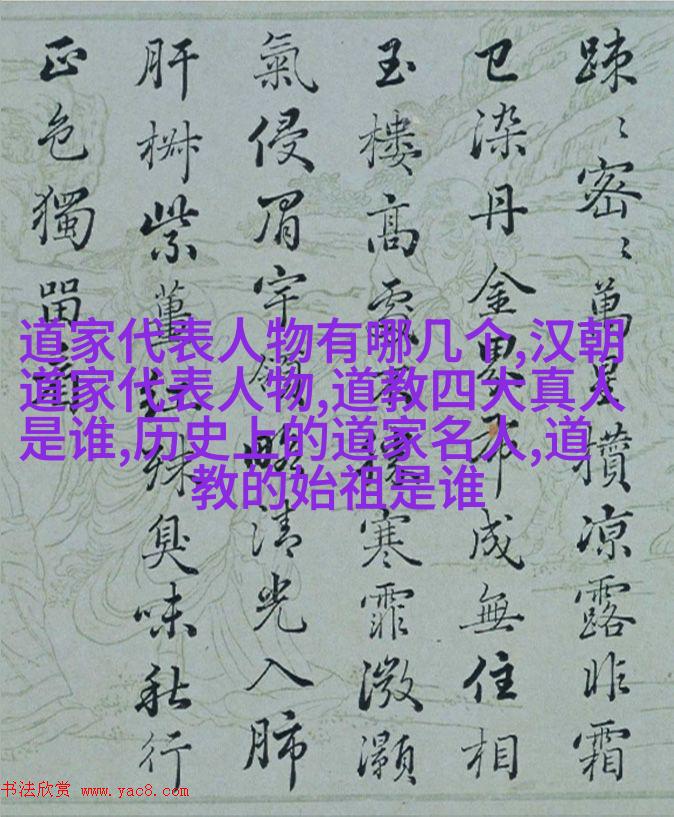 踈〻密〻萬星攢凉露昨霜
已染丹金界布成無住相
玉樓高處寒霏溦灝
氣侵眉宇領略清光入肺
肝紫殊臭味秋行
正色獨留
道家代表人物有哪几个,汉朝
道家代表人物,道教四大真人
是谁,历史上的道家名人,道
教的始祖是谁
书法欣赏 www.yac8.com